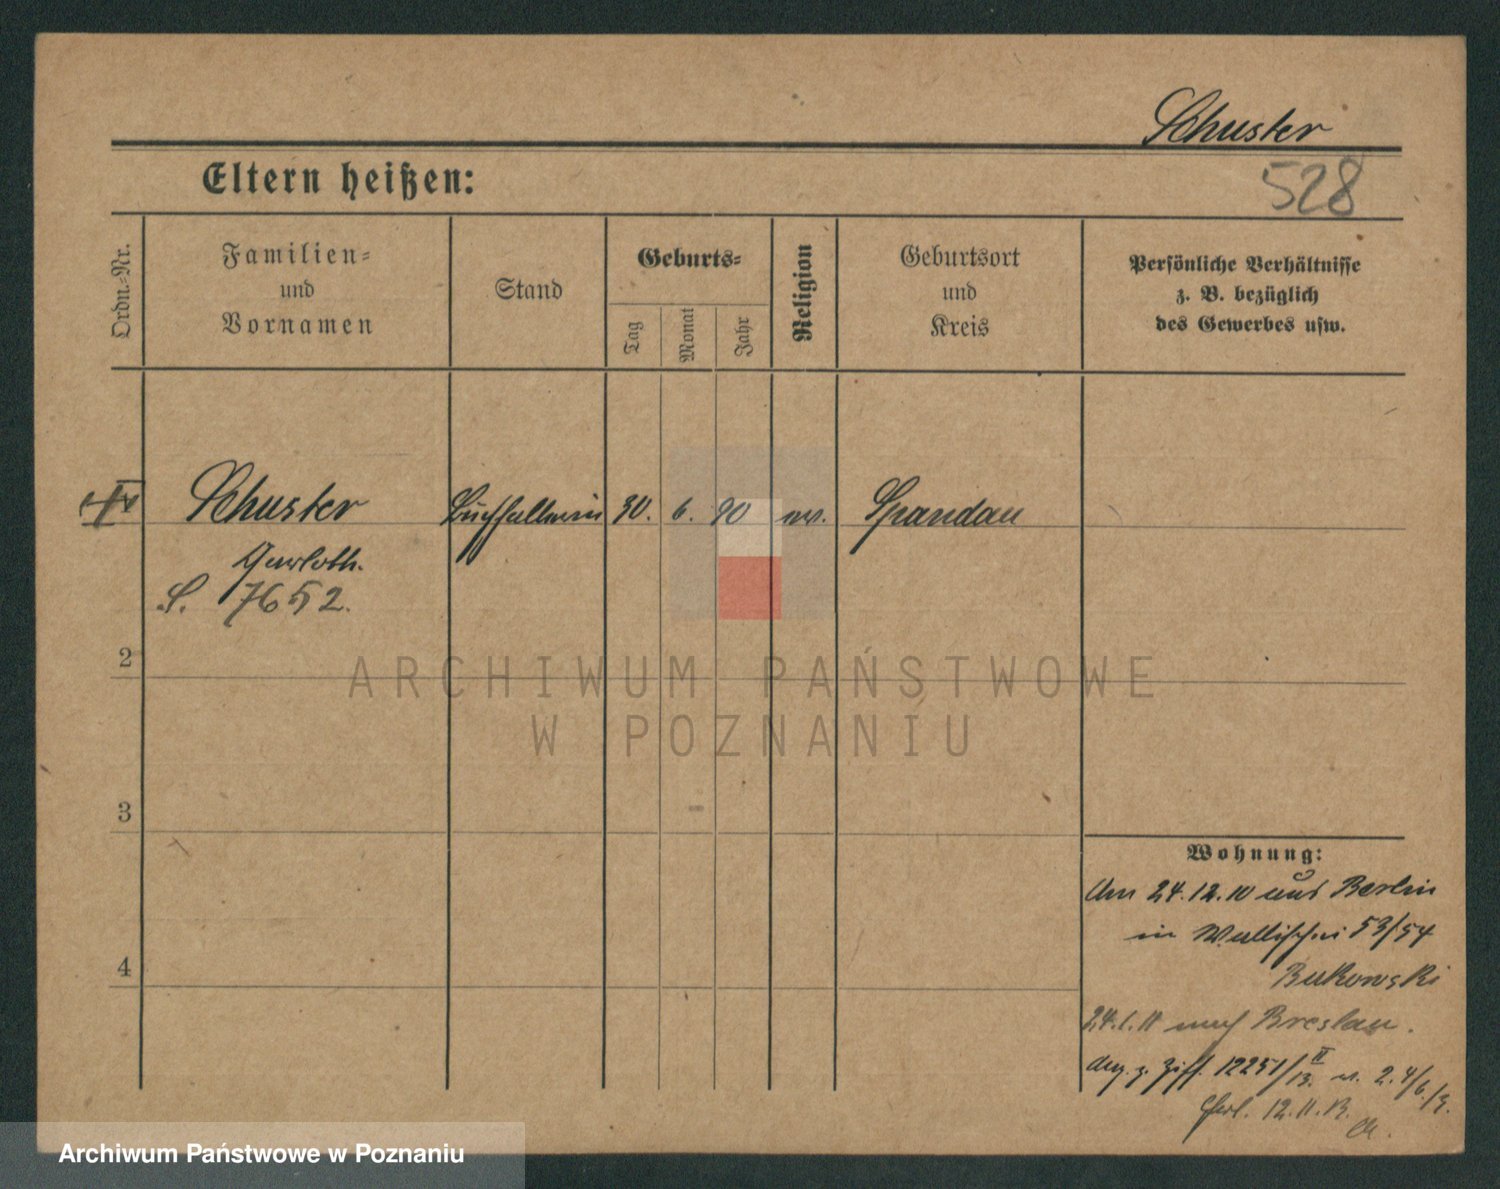 Schuster
528
Eltern heißen:
Ordn.-Nr.
Familien-
und
Vornamen
Stand
Geburts-
Tag
Monat
Jahr
Religion
Geburtsort
und
Kreis
Persönliche Verhältnisse
z. B. bezüglich
des Gewerbes usw.
Schuster Buchhalterin 30. 6. 90 ev. Spandau
S. 7652.
2
ARCHIWUM PAŃSTWOWE
W POZNANIU
3
Wohnung:
Am 24.12.10 aus Berlin
in Wallischei 53/54
Bukowski
4
24.1.11 nach Breslau.
12251/II 13.
12.11.13.
Archiwum Państwowe w Poznaniu